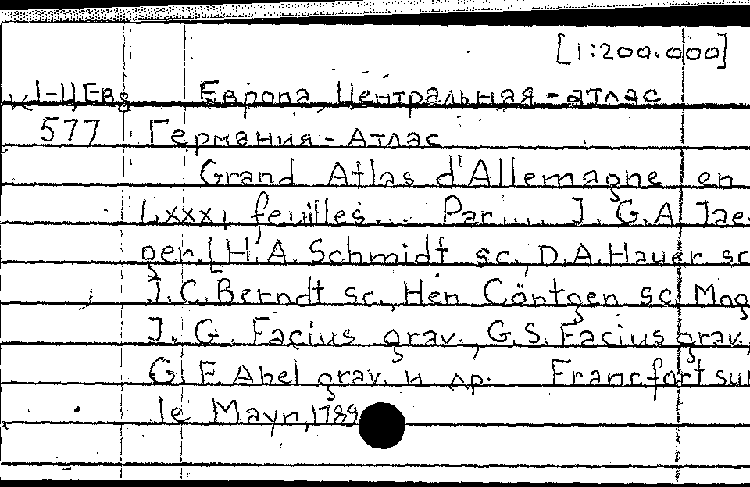 [1:200.000]
Европа, Центральная - атлас
577 Германия - Атлас
Grand Atlas d'Allemagne en
LXXXI feuilles.... Par.... J. G. A. Jae-
ger. [H. A. Schmidt sc., D. A. Hauer sc.
J. C. Berndt sc., Hen. Cöntgen sc. Mog.
J. G. Facius grav., G. S. Facius grav.,
G. F. Abel grav. и др. Francfort sur
le Mayn, 1789